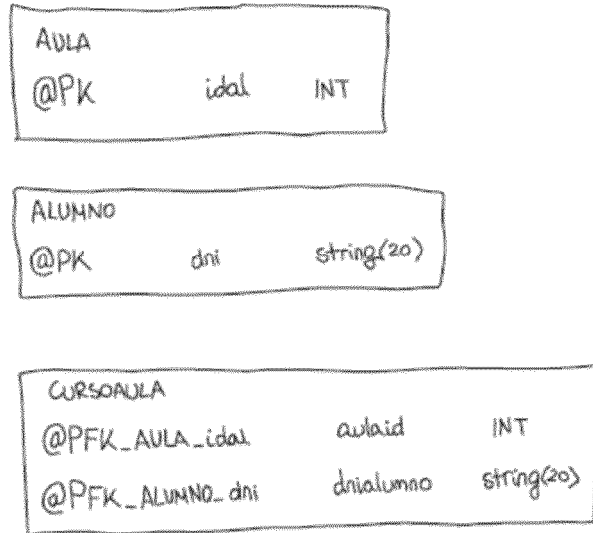 AULA
@PK idal INT
ALUMNO
@PK dni string(20)
CURSOAULA
@PFK_AULA_idal aulaid INT
@PFK_ALUMNO_dni dnialumno string(20)